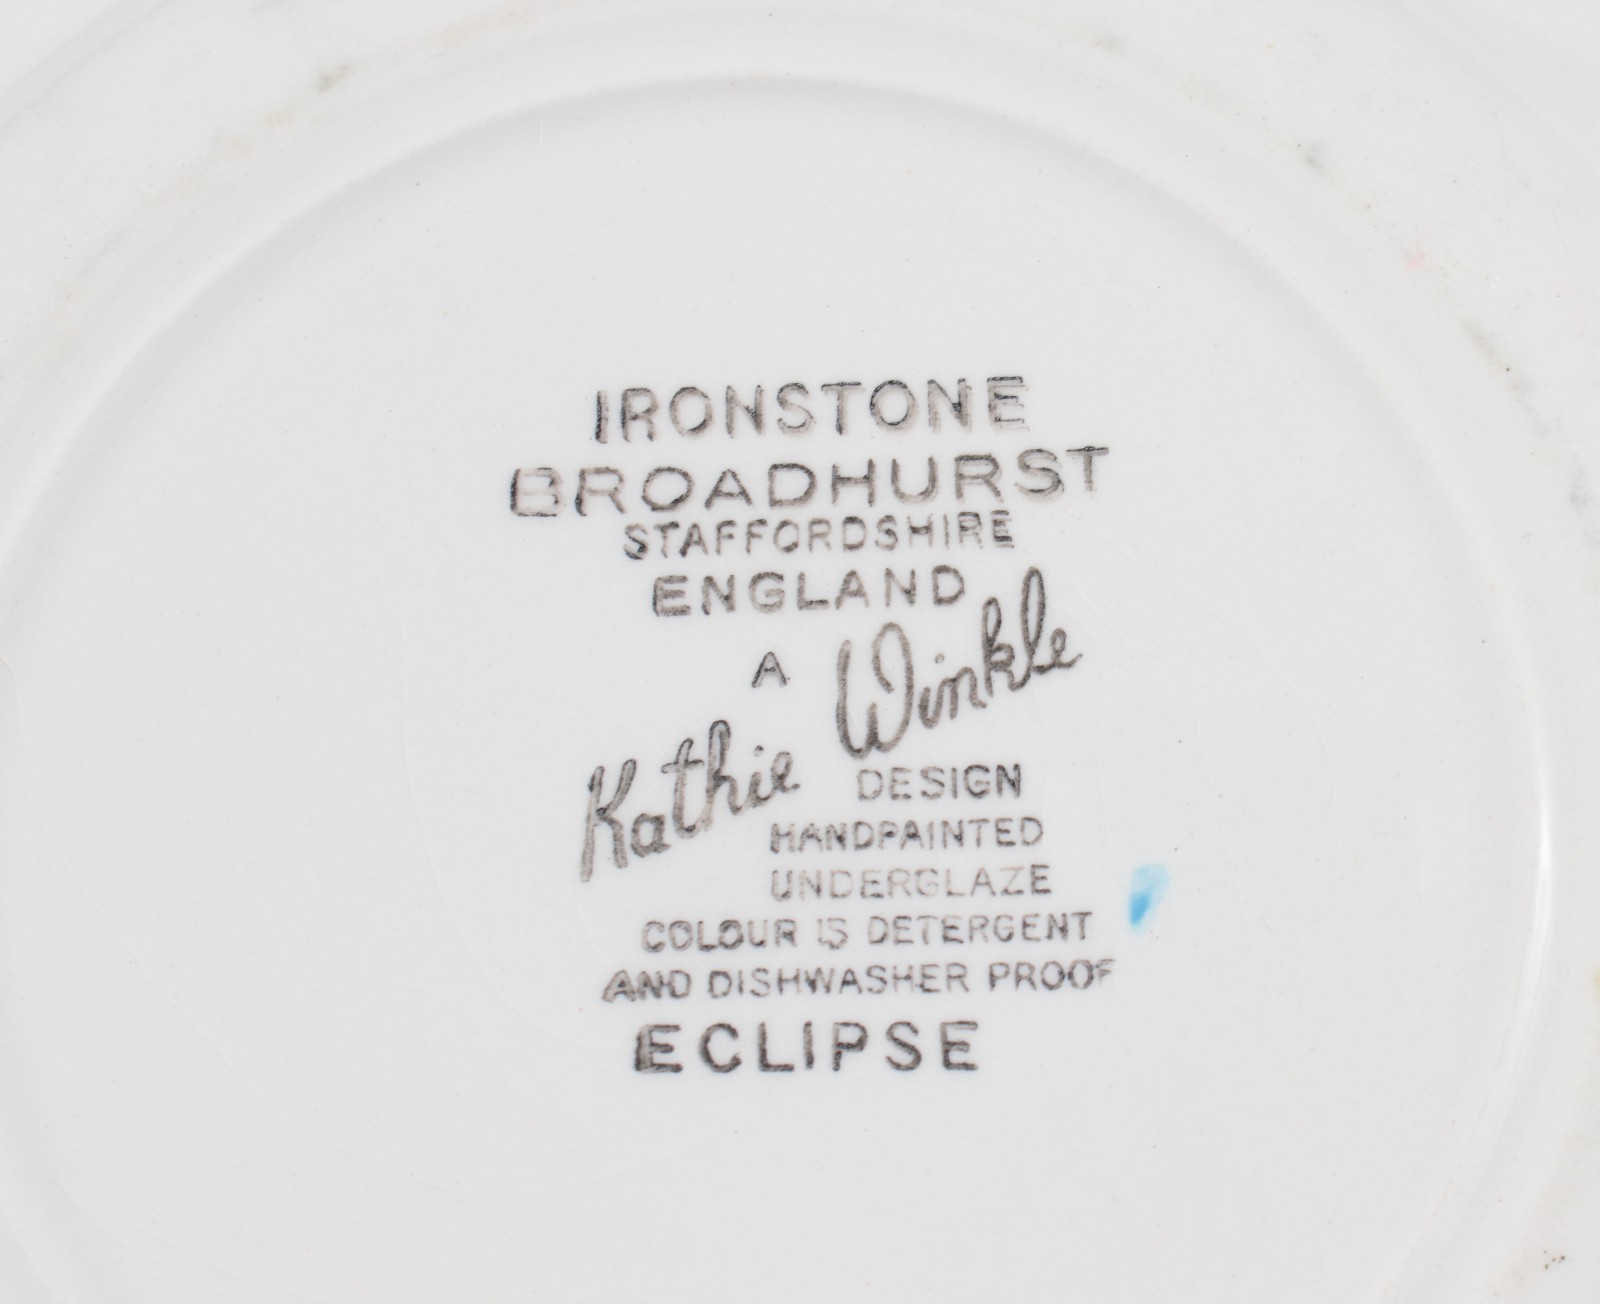 IRONSTONE
BROADHURST
STAFFORDSHIRE
ENGLAND
A
Kathie Winkle
DESIGN
HANDPAINTED
UNDERGLAZE
COLOUR IS DETERGENT
AND DISHWASHER PROOF
ECLIPSE